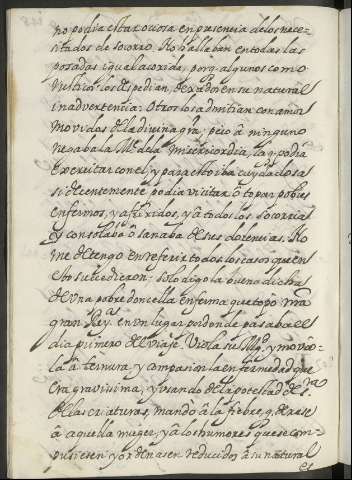 no podia estar ociosa en presencia de los nece-
sitados de socorro. No hallaban en todas las
posadas igual acogida, porq. algunos como
rusticos los despedian, dexados en su natural
inadvertencia. Otros los admitian con amor
movidos de la divina gra; pero à ninguno
negaba la Me. de la misericordia, la q. podia
exercitar con el; y para esto iba cuydadosa
si decentemente podia visitar, ô topar pobres
enfermos, y afligidos, y â todos los socorria
y consolaba ô sanaba de sus dolencias. No
me detengo en referir todos los casos que en
esto sucedieron: solo digo la buena dicha
de una pobre doncella enferma que topô nra
gran Reya. en un lugar por donde pasaba el
dia primero del viaje. Viola su Mgd. y movio-
la â ternura y compasion la enfermedad que
era gravissima, y usando de la potestad de Sra
de las criaturas, mandò à la fiebre, q. dexase
â aquella muger, y â los humores que se com-
pusiesen y ordenasen reducidos â su natural
es